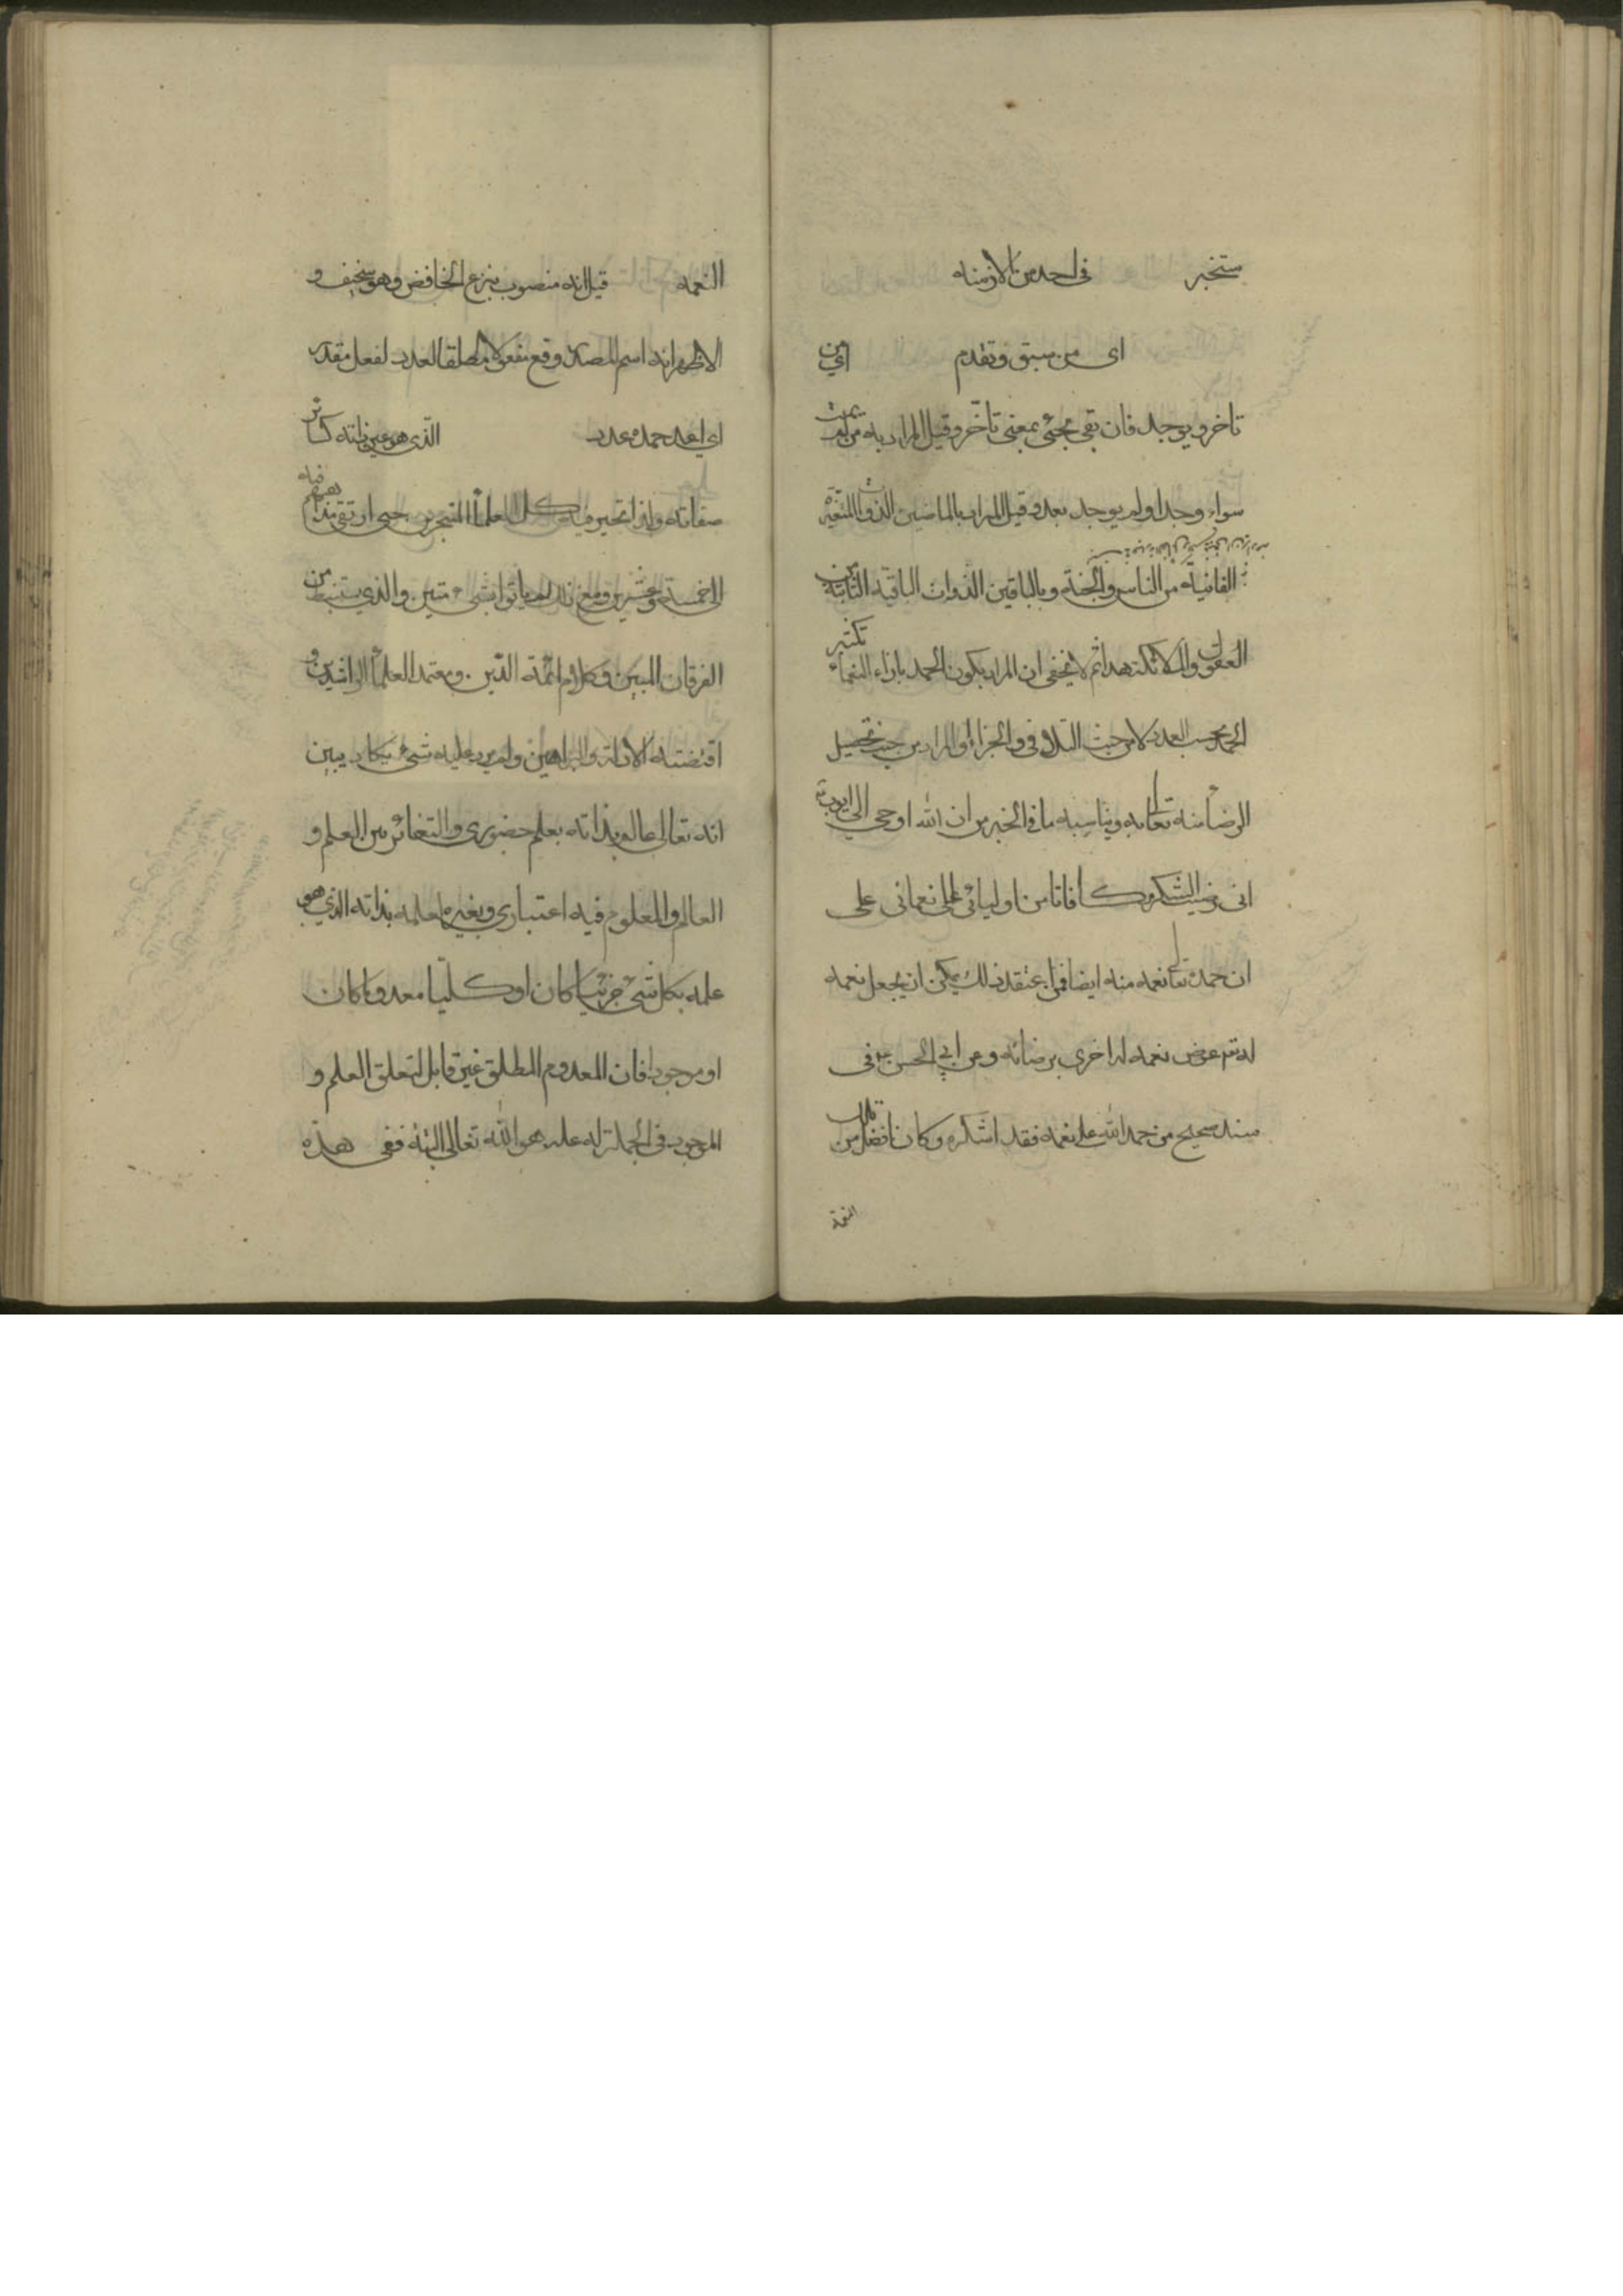 ستخبر في احد من الازمنة
اى من سبق وتقدم اي من
تاخر ويوجد فان بقي يجئ بمعنى تأخر وقيل المراد به من لم يمت
سواء وجد او لم يوجد بعد وقيل المراد بالماضين الذوات المتغيرة
الفانية من الناس والجنة وبالباقين الذوات الباقية الثابتة من
العقول والملائكة هذا ثم لا يخفى ان المراد بكون الحمد بازاء النعماء تكثير
الحمد بحسب العدد لا من حيث التلافي والجزاء او المراد من حيث تحصيل
الرضا منه تعالى به ويناسبه ما في الخبر من ان الله اوحى الى ايوب
انى رضيت الشكر مكافاتا من اوليائي على نعمائى على
ان حمده تعالى نعمه منه ايضا فمن اعتقد ذلك يمكن ان يجعل نعمه
له تعم عوض نعمه له اخرى برضائه وعن ابي الحسن في
سند صحيح من حمد الله على نعمه فقد اشكره وكان افضل من تلك
النعمة
النعمه قيل انه منصوب بنزع الخافض وهو سخيف و
الاظهر انه اسم المصدر وقع مفعولا مطلقا لعدد لفعل مقدر
اي اعد حمده عدد الذى هو عين ذاته كسائر
صفاته ولذا تحير فيه كل العلماء المتبحرين حتى ارتقى مذاهبهم فيه
الى خمسة وعشرين ومع ذلك لم ياتوا بشيء متين والذي يستنبط من
الفرقان المبين وكلام ائمة الدين ومعتمد العلماء الراشدين و
اقتضته الادلة والبراهين ولم يرد عليه شيء يكاد يبين
انه تعالى عالم بذاته بعلم حضورى والتغائر بين العلم و
العالم والمعلوم فيه اعتباري وبغيره لعلمه بذاته الذي هو
علمه بكل شيء جزئيا كان او كليا معدوما كان
او موجودا فان المعدوم المطلق غير قابل لتعلق العلم و
الموجود في الجملة له علة هو الله تعالى البتة ففى هذه